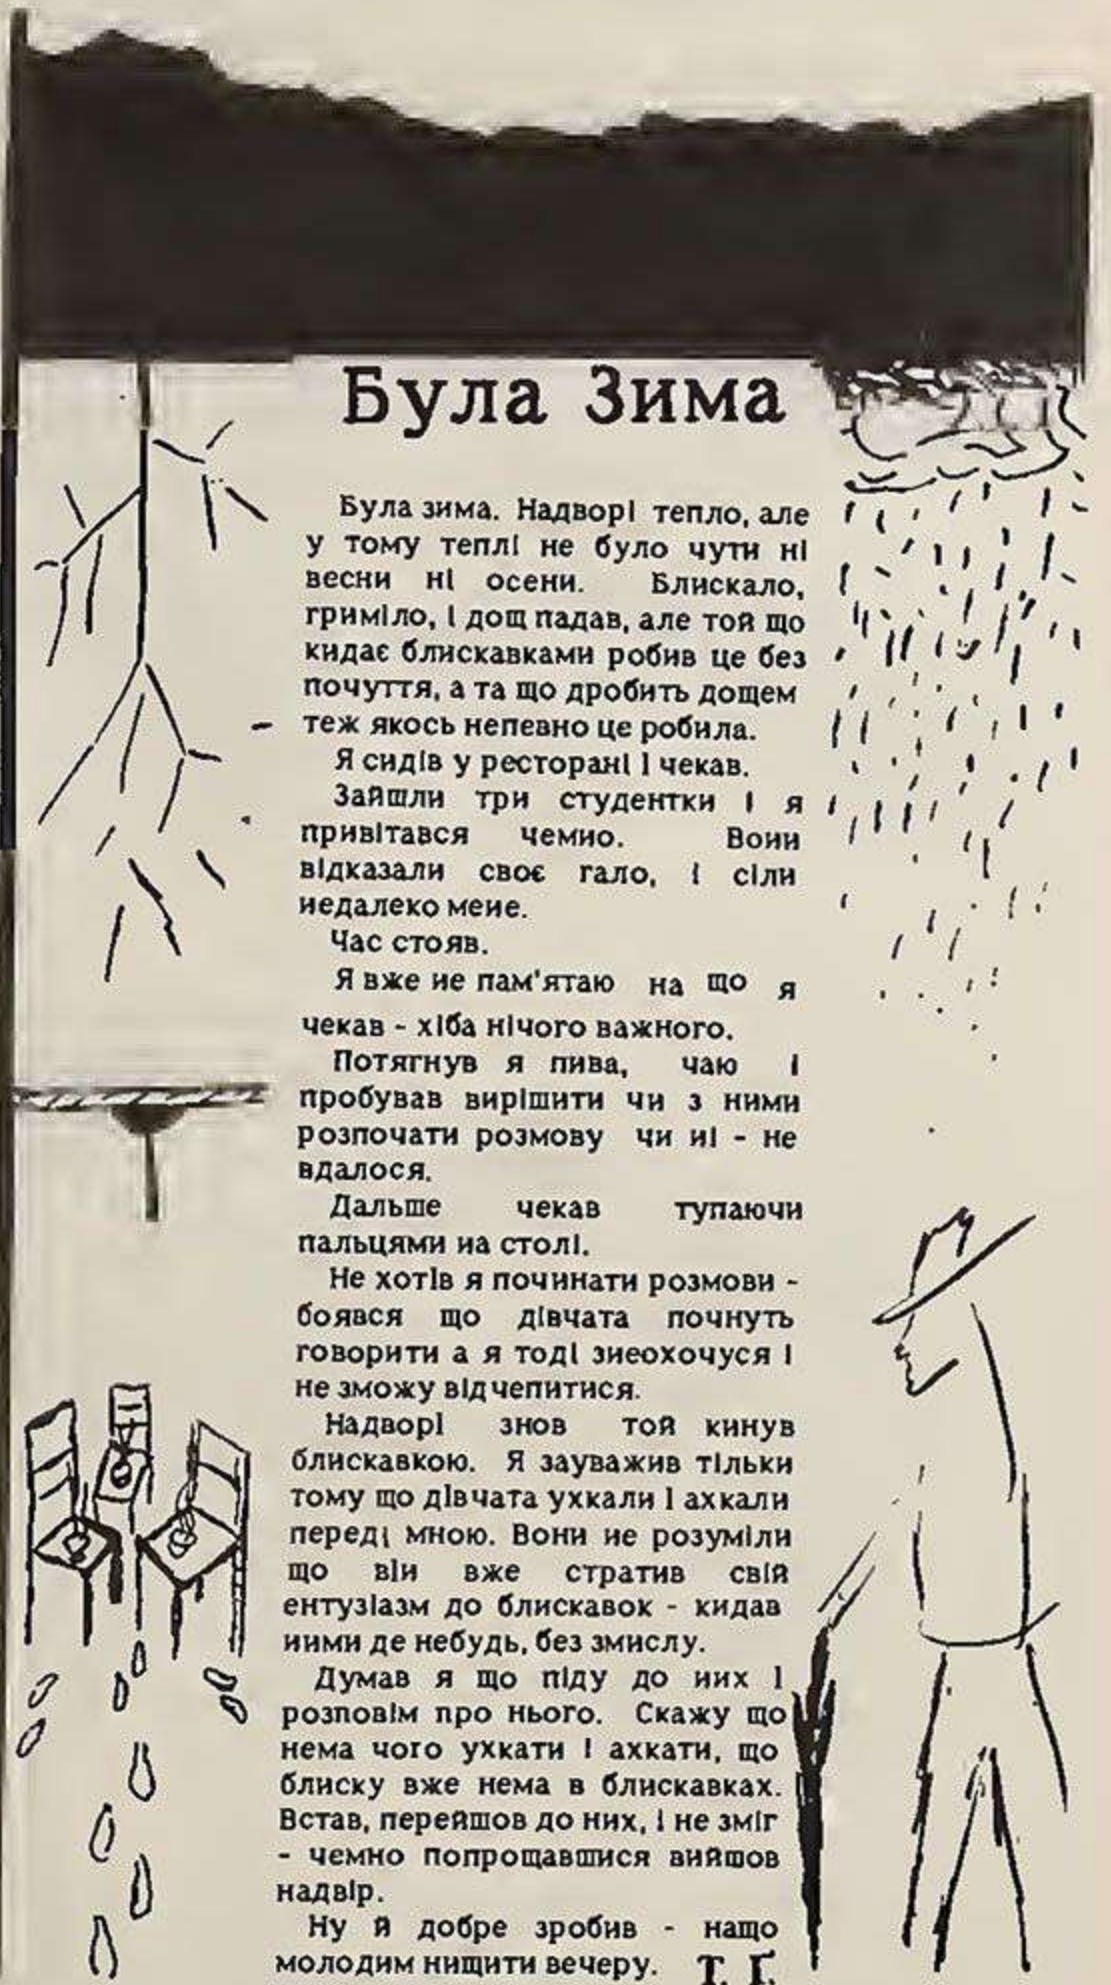 Була Зима
Була зима. Надворі тепло, але
у тому теплі не було чути ні
весни ні осени. Блискало,
гриміло, і дощ падав, але той що
кидає блискавками робив це без
почуття, а та що дробить дощем
теж якось непевно це робила.
Я сидів у ресторані і чекав.
Зайшли три студентки і я
привітався чемно. Вони
відказали своє гало, і сіли
недалеко мене.
Час стояв.
Я вже не пам'ятаю на що я
чекав - хіба нічого важного.
Потягнув я пива, чаю і
пробував вирішити чи з ними
розпочати розмову чи ні - не
вдалося.
Дальше чекав тупаючи
пальцями на столі.
Не хотів я починати розмови -
боявся що дівчата почнуть
говорити а я тоді знеохочуся і
не зможу відчепитися.
Надворі знов той кинув
блискавкою. Я зауважив тільки
тому що дівчата ухкали і ахкали
переді мною. Вони не розуміли
що він вже стратив свій
ентузіазм до блискавок - кидав
ними де небудь, без змислу.
Думав я що піду до них і
розповім про нього. Скажу що
нема чого ухкати і ахкати, що
блиску вже нема в блискавках.
Встав, перейшов до них, і не зміг
- чемно попрощавшися вийшов
надвір.
Ну й добре зробив - нащо
молодим нищити вечеру. Т. Ґ.